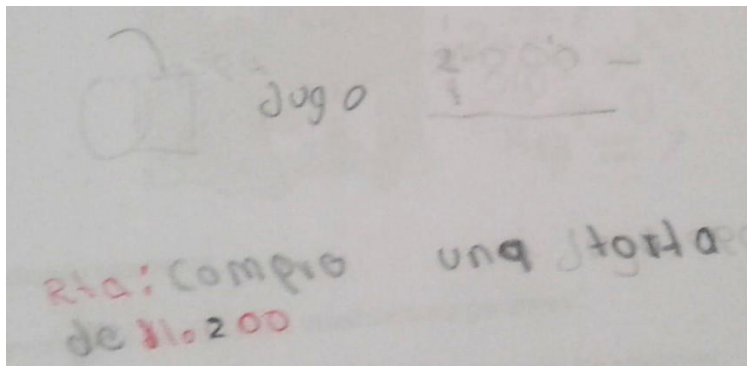 Jugo 2000 -
Rta: Compro una torta
de $1.200